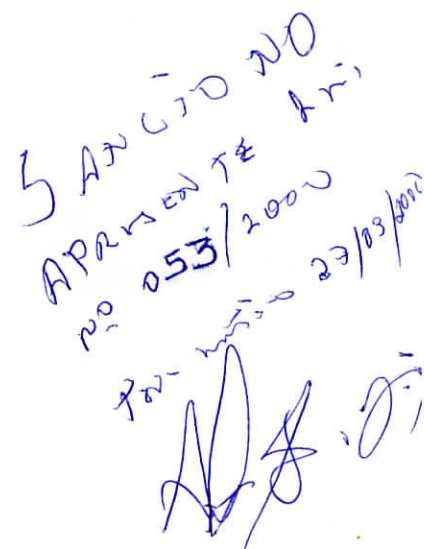 SANCIONO
APRESENTE Lei
Nº 053/2000
27/03/2000